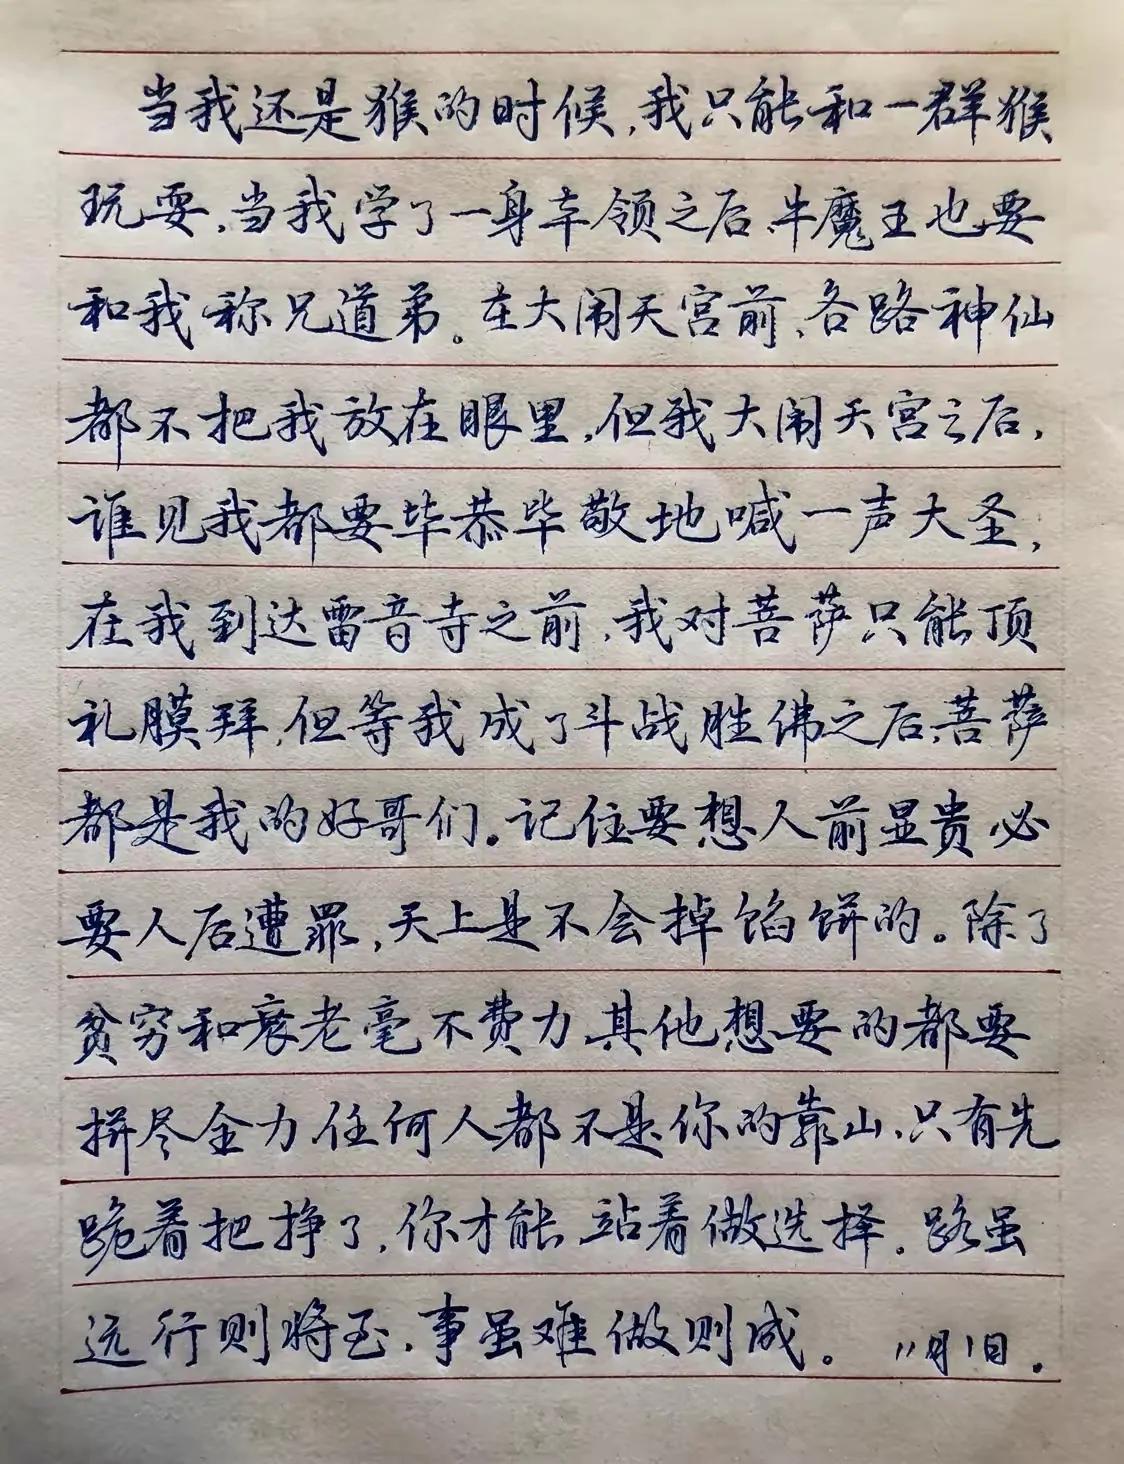 当我还是猴的时候，我只能和一群猴
玩耍，当我学了一身本领之后，牛魔王也要
和我称兄道弟。在大闹天宫前，各路神仙
都不把我放在眼里，但我大闹天宫之后，
谁见我都要毕恭毕敬地喊一声大圣，
在我到达雷音寺之前，我对菩萨只能顶
礼膜拜，但等我成了斗战胜佛之后，菩萨
都是我的好哥们。记住要想人前显贵必
要人后遭罪，天上是不会掉馅饼的。除了
贫穷和衰老毫不费力，其他想要的都要
拼尽全力任何人都不是你的靠山，只有先
跪着把挣了，你才能站着做选择。路虽
远行则将至，事虽难做则成。 11月1日.